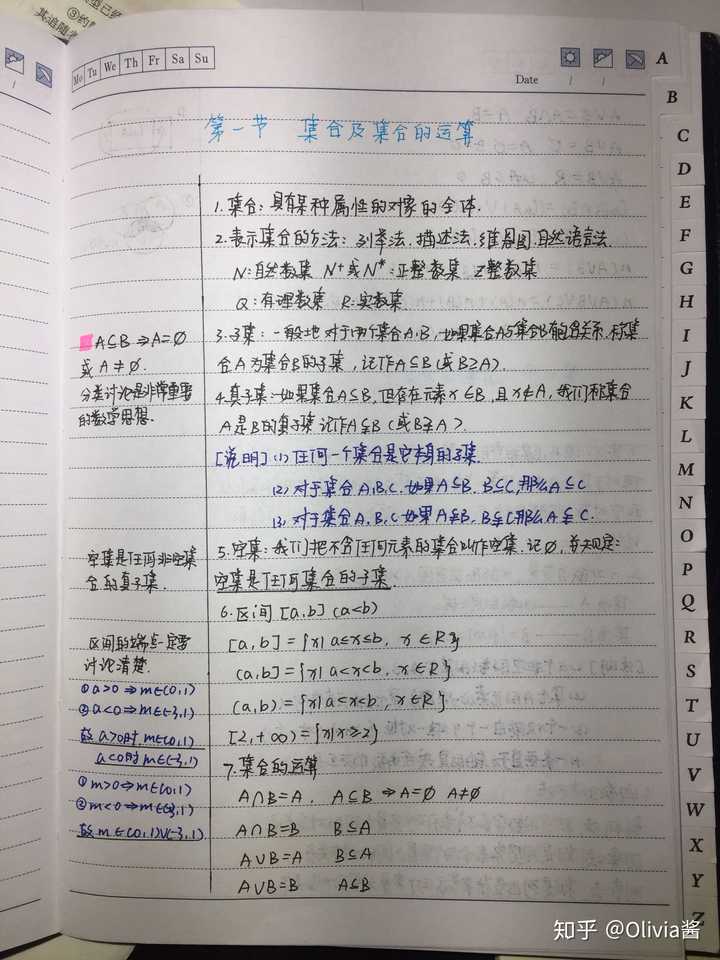 型已经
③约
其追随
Mo Tu We Th Fr Sa Su
Date / /
第一节 集合及集合的运算
1.集合：具有某种属性的对象的全体.
2.表示集合的方法：列举法.描述法.维恩图.自然语言法.
N:自然数集 N⁺或N*:正整数集 Z整数集
Q:有理数集 R:实数集
3.子集：一般地对于两个集合A,B,如果集合A与集合B有包含关系,称集
合A为集合B的子集,记作A⊆B(或B⊇A).
4.真子集:如果集合A⊆B,但存在元素x∈B,且x∉A,我们称集合
A是B的真子集记作A⫋B(或B⫌A).
[说明](1)任何一个集合是它本身的子集.
(2)对于集合A,B,C.如果A⊆B,B⊆C,那么A⊆C
(3)对于集合A,B,C如果A⫋B,B⫋C那么A⫋C.
5.空集:我们把不含任何元素的集合叫作空集.记∅,并规定:
空集是任何集合的子集.
6.区间[a,b](a<b)
[a,b]={x|a≤x≤b,x∈R}
(a,b]={x|a<x≤b,x∈R}
(a,b)={x|a<x<b,x∈R}
[2,+∞)={x|x≥2}
7.集合的运算
A∩B=A. A⊆B ⇒A=∅ A≠∅
A∩B=B B⊆A
A∪B=A B⊆A
A∪B=B A⊆B
A⊆B⇒A=∅
或A≠∅.
分类讨论是非常重要
的数学思想.
空集是任何非空集
合的真子集.
区间的端点一定要
讨论清楚.
①a>0⇒m∈(0,1)
②a<0⇒m∈(-3,1)
故a>0时,m∈(0,1)
a<0时m∈(-3,1)
①m>0⇒m∈(0,1)
②m<0⇒m∈(-3,1)
故m∈(0,1)∪(-3,1)
A
B
C
D
E
F
G
H
I
J
K
L
M
N
O
P
Q
R
S
T
U
V
W
X
Y
Z
知乎 @Olivia酱